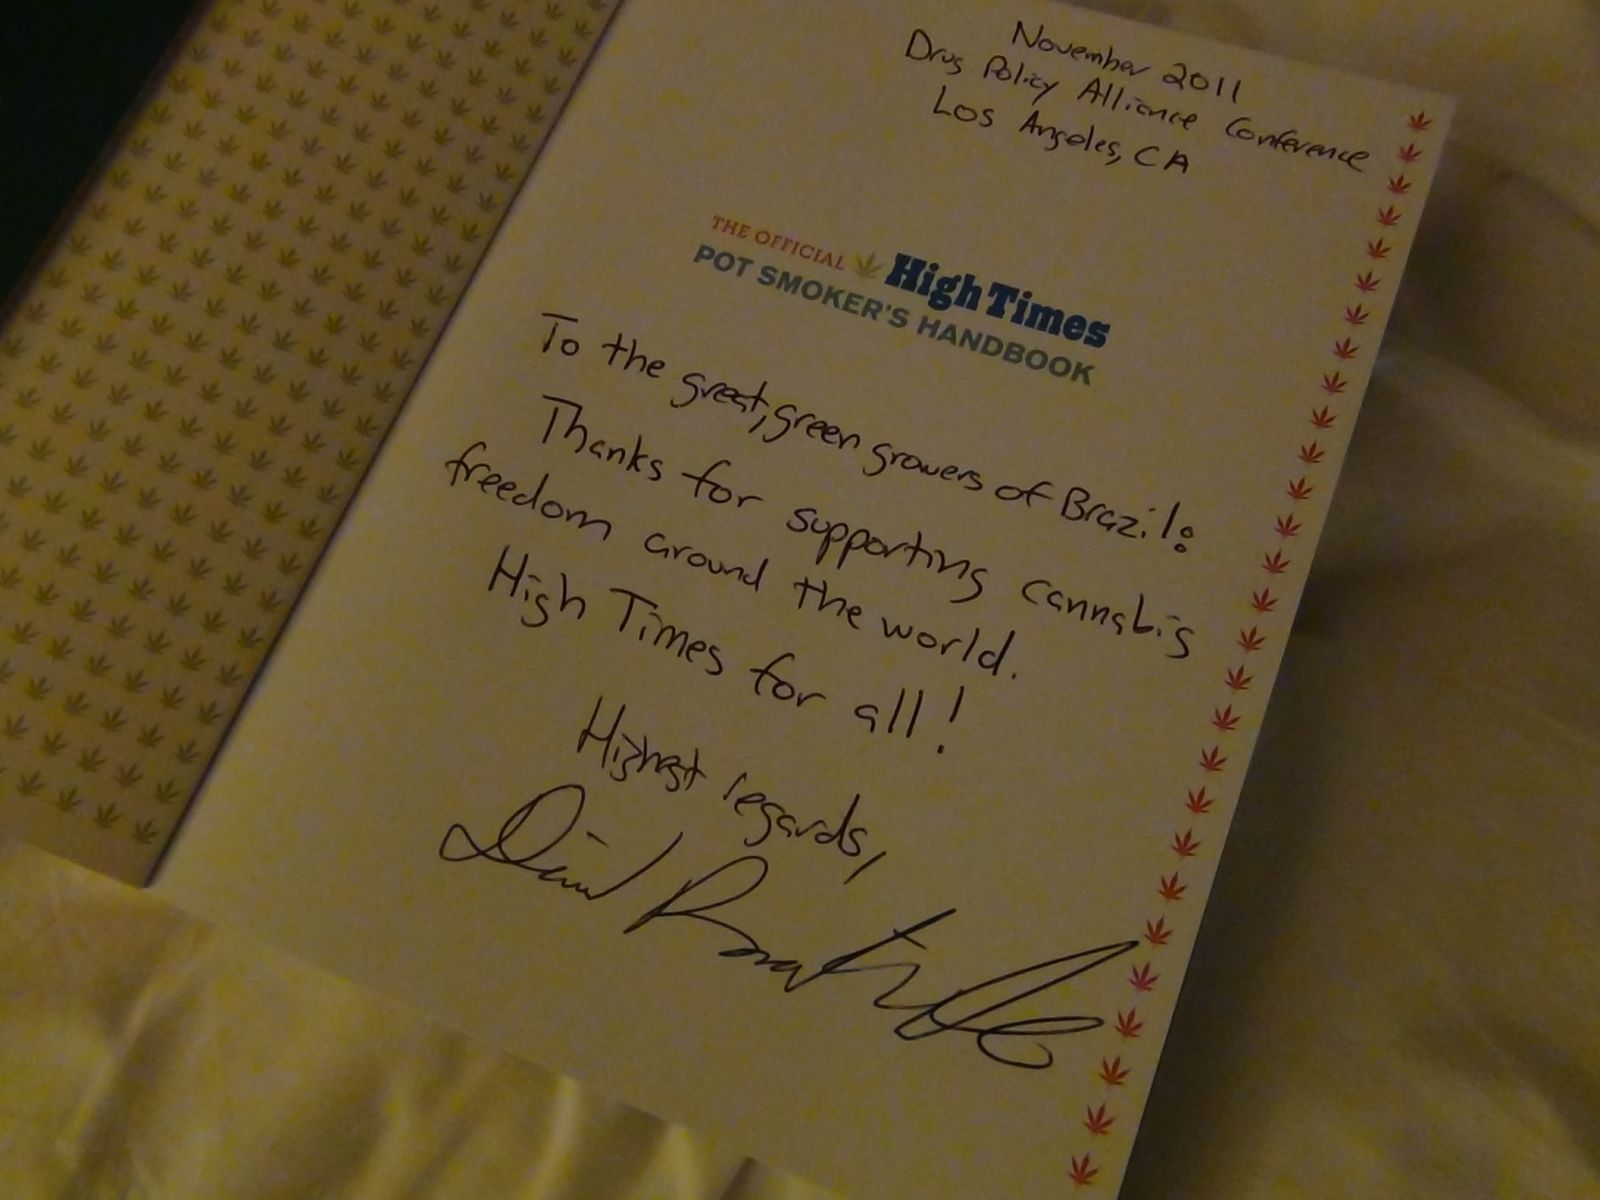 November 2011
Drug Policy Alliance Conference
Los Angeles, CA
THE OFFICIAL High Times
POT SMOKER'S HANDBOOK
To the great, green growers of Brazil:
Thanks for supporting cannabis
freedom around the world.
High Times for all!
Highest regards,